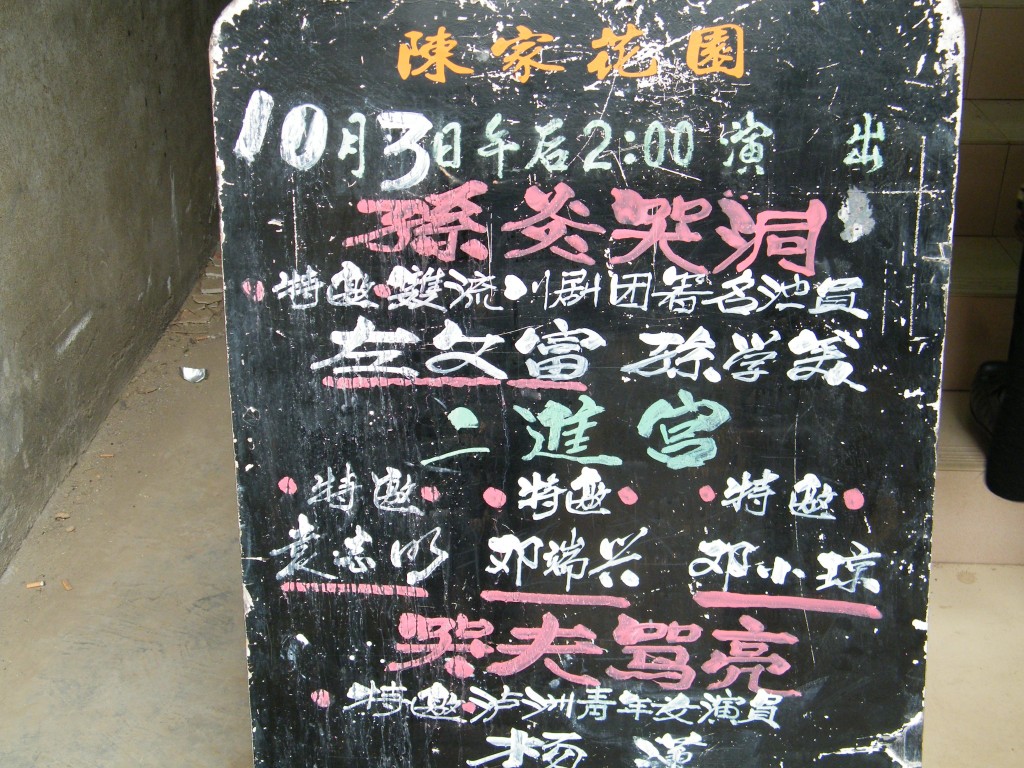 陳家花園
10月3日午后2:00演 出
孫炎哭洞
特邀双流川剧团著名演員
左文富 孫学
二進宫
特邀 特邀 特邀
袁志明 邓瑞兴 邓小琼
哭夫骂亮
特邀泸州青年女演員
杨